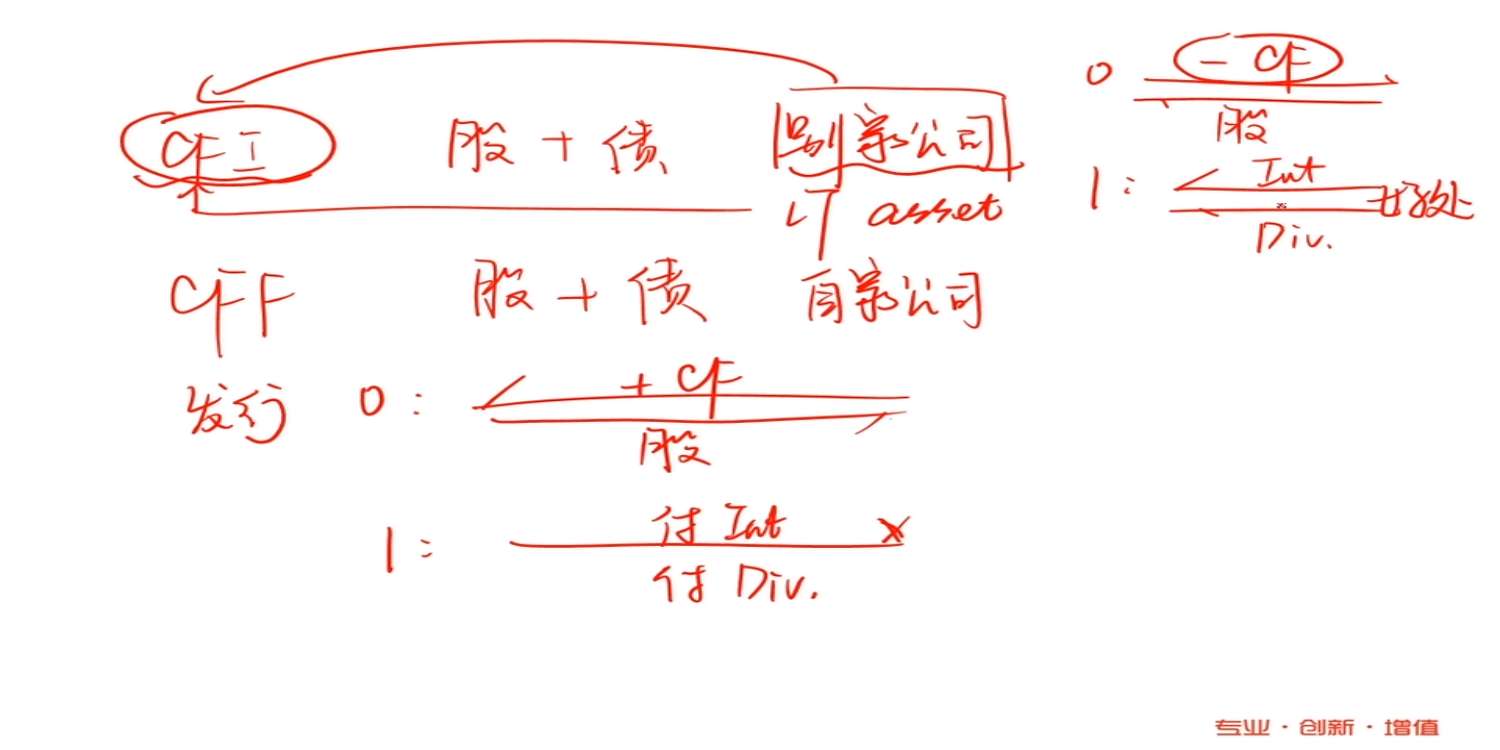 CFI 股 + 债 别家公司
LT asset
CFF 股 + 债 自家公司
发行 0: + CF
股
1: 付 Int
付 Div.
0 - CF
股
1: Int 好处
Div.
专业·创新·增值